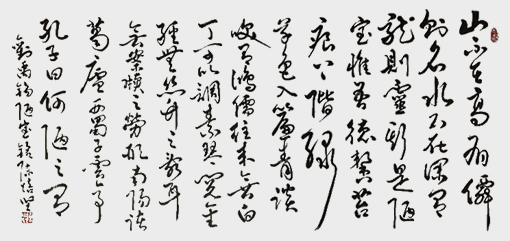 山不在高有僊
則名水不在深有
龍則靈斯是陋
室惟吾德馨苔
痕上階綠
草色入簾青談
笑有鴻儒往來無白
丁可以調素琴閱金
經無絲竹之亂耳
無案牘之勞形南陽諸
葛廬西蜀子雲亭
孔子曰何陋之有
劉禹錫陋室銘